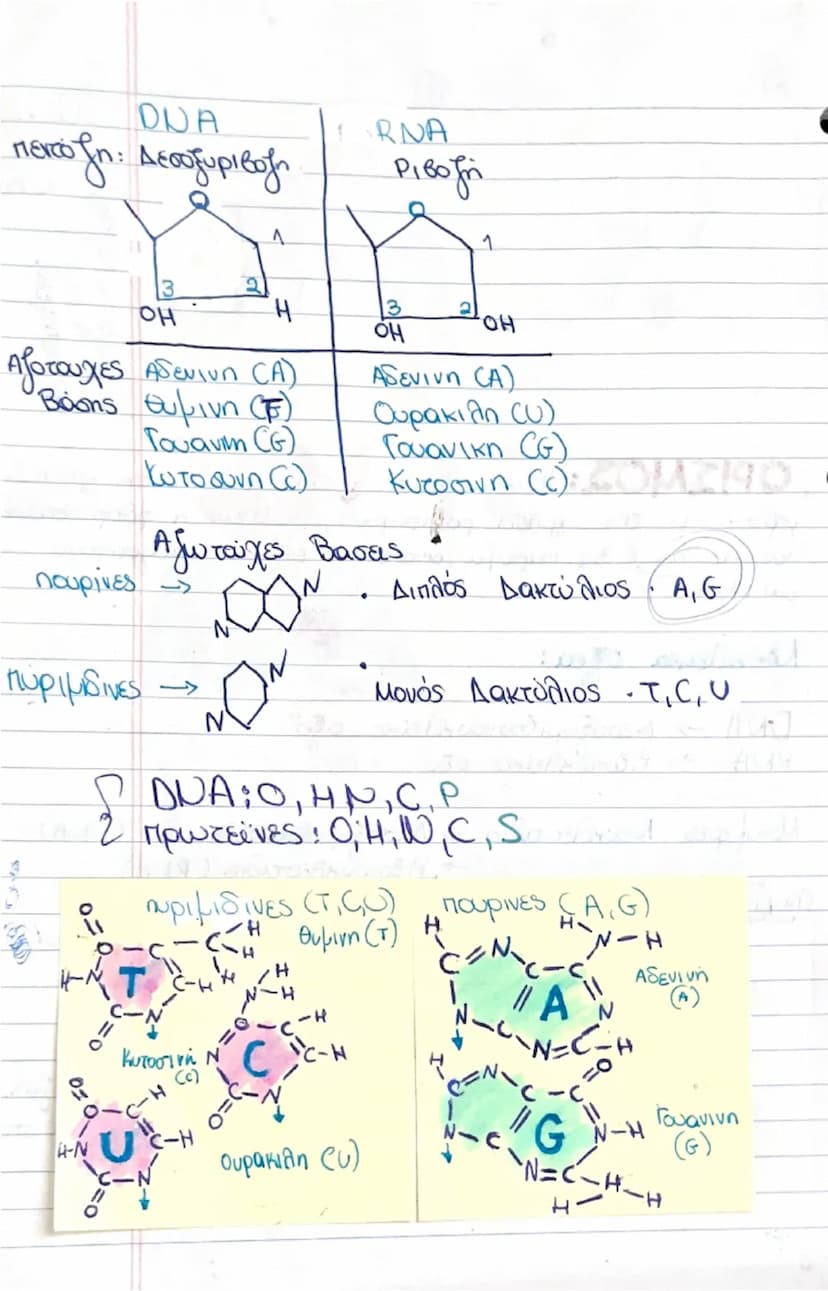 DNA
RNA
πεντόζη: Δεσοξυριβοζη
Ριβοζή
O
1
3
2
OH
H
O
1
3
2
OH
OH
Αζοτουχες
Βάσης
Αδενινη (A)
Θυμινη (T)
Γουανινη (G)
Κυτοσινη (C)
Αδενινη (A)
Ουρακιλη (U)
Γουανικη (G)
Κυτοσινη (C)
Αζωτούχες Βασεις
πουρίνες →
N
N
• Διπλός Δακτύλιος • A, G
πυριμιδινες →
N
N
• Μονός Δακτύλιος • T, C, U
DNA: O, H, N, C, P
πρωτεϊνες: O, H, N, C, S
πυριμιδινες (T,C,U)
Θυμινη (T)
T
Κυτοσινή
(C)
C
U
ουρακιλη (U)
πουρινες (A,G)
Αδενινή
(A)
A
Γουανινη
(G)
G